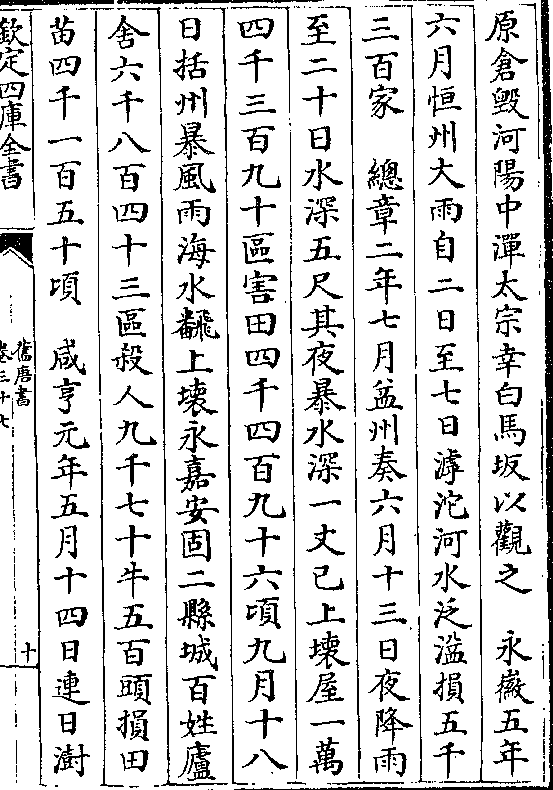 原倉毀河陽中潬太宗幸白馬坂以觀之　永徽五年
六月恒州大雨自二日至七日滹沱河水泛溢損五千
三百家　總章二年七月益州奏六月十三日夜降雨
至二十日水深五尺其夜暴水深一丈已上壞屋一萬
四千三百九十區害田四千四百九十六頃九月十八
日括州暴風雨海水飜上壞永嘉安固二縣城百姓廬
舍六千八百四十三區殺人九千七十牛五百頭損田
苗四千一百五十頃　咸亨元年五月十四日連日澍
欽定四庫全書
舊唐書
卷三十七
十